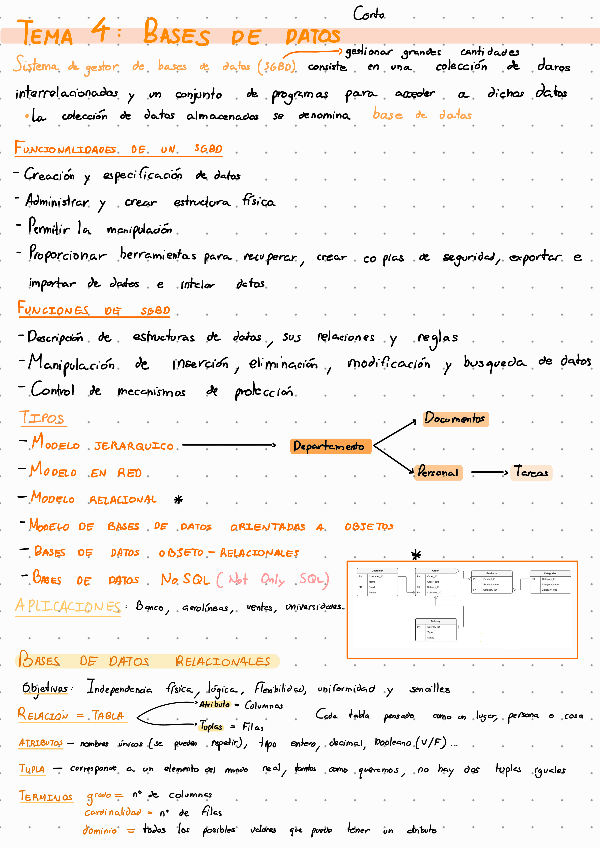 Corta
TEMA 4: BASES DE DATOS
gestionar grandes cantidades
Sistema de gestor de bases de datos (SGBD) consiste en una colección de datos
interrelacionados y un conjunto de programas para acceder a dichos datos
• La colección de datos almacenados se denomina base de datos
FUNCIONALIDADES DE UN SGBD
- Creación y especificación de datos
- Administrar y crear estructura física
- Permitir la manipulación
- Proporcionar herramientas para recuperar, crear copias de seguridad, exportar e
importar de datos e datos
FUNCIONES DE SGBD
- Descripción de estructuras de datos, sus relaciones y reglas
- Manipulación de inserción, eliminación, modificación y busqueda de datos
- Control de mecanismos de protección
TIPOS
Documentos
- MODELO JERARQUICO
Departamento
- MODELO EN RED
Personal
Tareas
- MODELO RELACIONAL *
- MODELO DE BASES DE DATOS ORIENTADAS A OBJETOS
- BASES DE DATOS OBJETO - RELACIONALES
*
- BASES DE DATOS NO SQL (Not Only SQL)
APLICACIONES: Banco, aerolíneas, ventas, universidades.
BASES DE DATOS RELACIONALES
Objetivos: Independencia física, lógica, flexibilidad, uniformidad y sencillez
Atributo = Columnas
RELACIÓN = TABLA
Cada tabla pensada como un lugar, persona o cosa
Tuplas = Filas
ATRIBUTOS - nombres únicos (se pueden repetir), tipo entero, decimal, booleano (V/F)...
TUPLA - corresponde a un elemento del mundo real, tantas como queramos, no hay dos tuplas iguales
TERMINOS grado = nº de columnas
cardinalidad = nº de filas
dominio = todos los posibles valores que puede tener un atributo